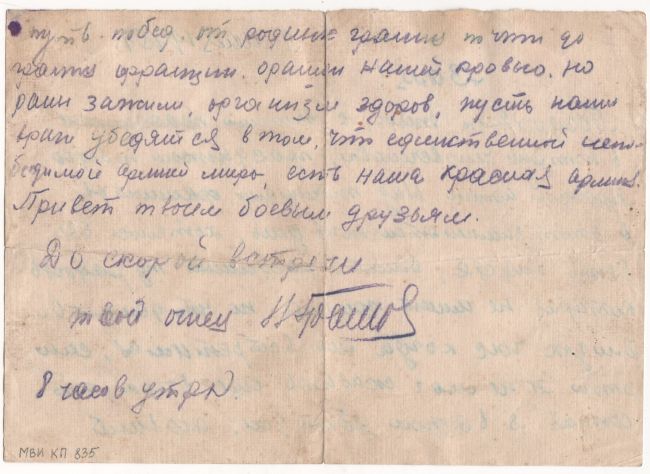 путь побед от родины гранита почти до
границ Франции. орошен нашей кровью. но
раны зажили, организм здоров, пусть наши
враги убедятся в том, что единственной непо-
бедимой армией мира, есть наша красная армия.
Привет твоем боевым друзьям.
До скорой встречи
твой отец
8 часов утра
МВИ КП 835